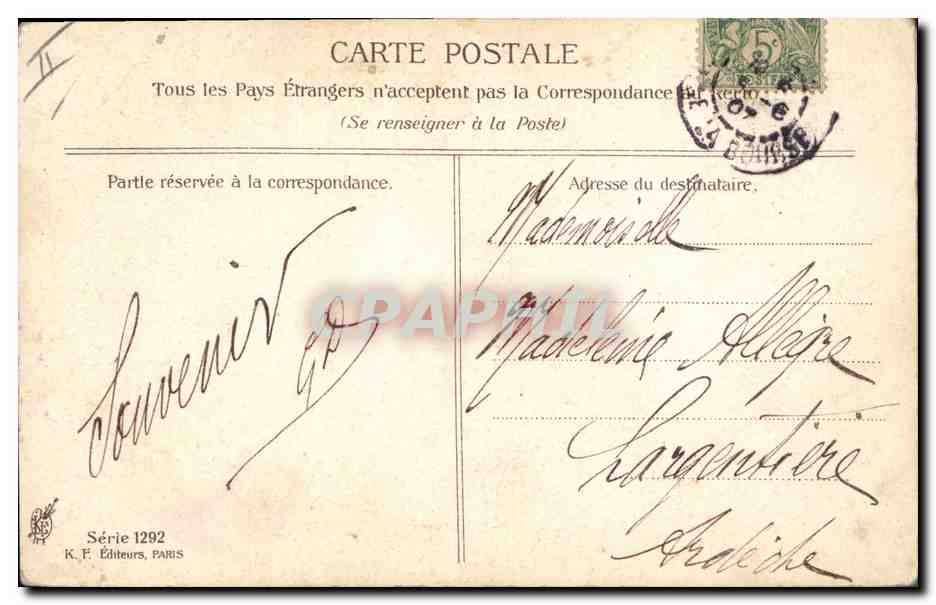 II
CARTE POSTALE
Tous les Pays Étrangers n'acceptent pas la Correspondance au Recto
(Se renseigner à la Poste)
5c
POSTES
LA BOURSE
Partie réservée à la correspondance.
Souvenir
Adresse du destinataire,
Mademoiselle
Madeleine Allègre
Largentière
Ardèche
CPAPHIL
Série 1292
K. F. Éditeurs, PARIS